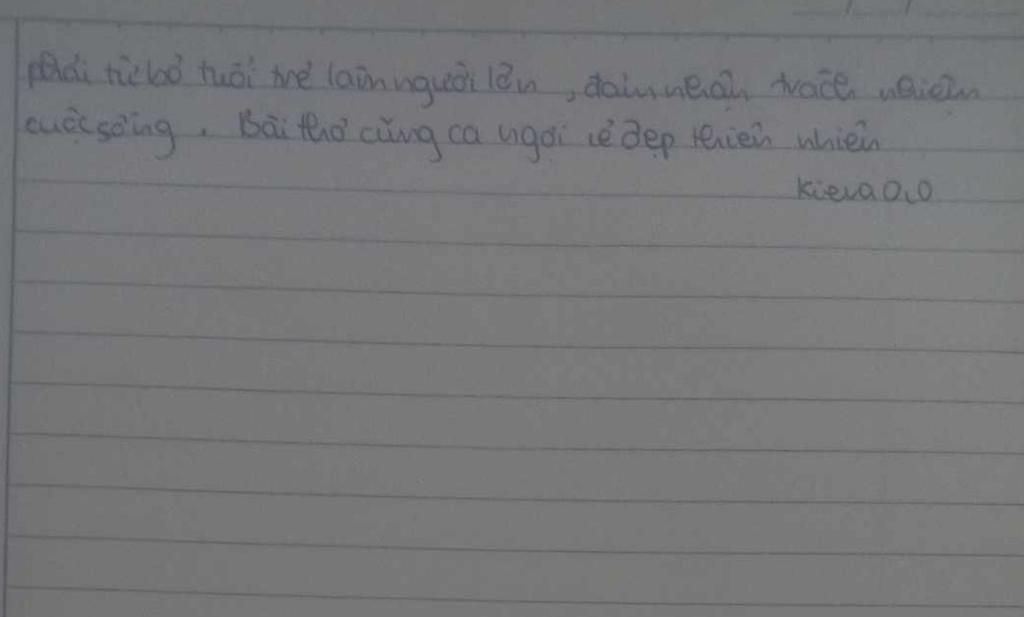 phải từ bỏ tuổi trẻ làm người lớn, đảm nhận trách nhiệm
cuộc sống. Bài thơ cũng ca ngợi vẻ đẹp thiên nhiên